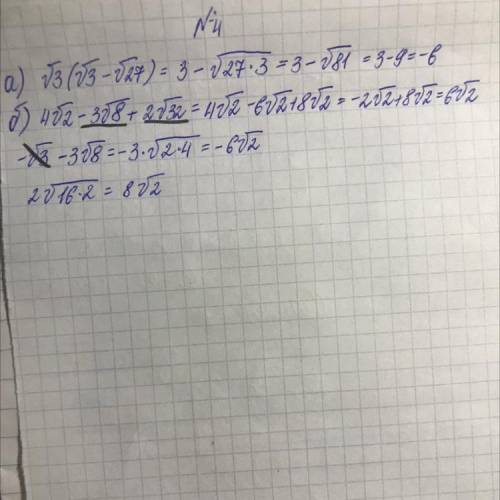 №4
а) √3(√3 - √27) = 3 - √27·3 = 3 - √81 = 3-9 = -6
б) 4√2 - 3√8 + 2√32 = 4√2 - 6√2 + 8√2 = -2√2 + 8√2 = 6√2
-√3 - 3√8 = -3·√2·4 = -6√2
2√16·2 = 8√2